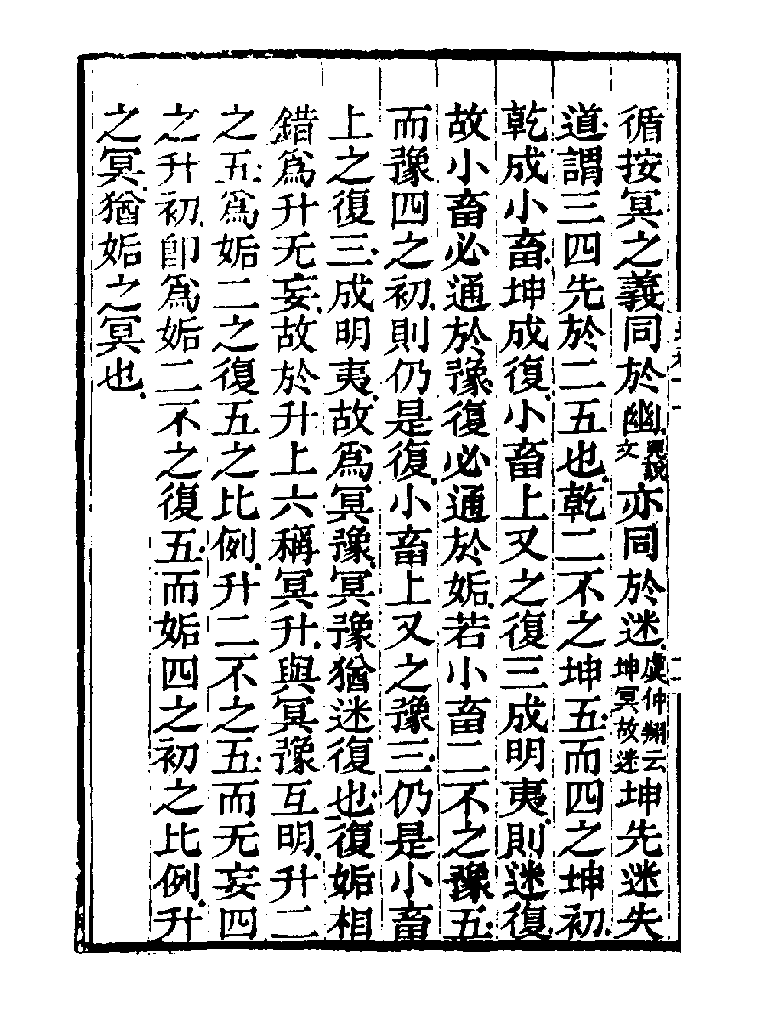 循按冥之義同於幽見說文亦同於迷虞仲翔云坤冥故迷坤先迷失
道謂三四先於二五也乾二不之坤五而四之坤初
乾成小畜坤成復小畜上又之復三成明夷則迷復
故小畜必通於豫復必通於姤若小畜二不之豫五
而豫四之初則仍是復小畜上又之豫三仍是小畜
上之復三成明夷故爲冥豫冥豫猶迷復也復姤相
錯爲升无妄故於升上六稱冥升與冥豫互明升二
之五爲姤二之復五之比例升二不之五而无妄四
之升初卽爲姤二不之復五而姤四之初之比例升
之冥猶姤之冥也